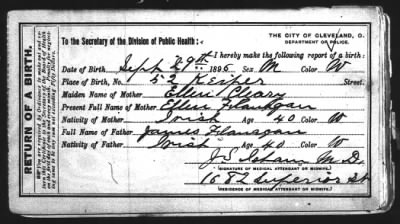 THE CITY OF CLEVELAND, O.
DEPARTMENT OF POLICE.
To the Secretary of the Division of Public Health:
I hereby make the following report of a birth:
Date of Birth Sept 29th 1895 Sex M Color W
Place of Birth, No. 52 Keiper Street.
Maiden Name of Mother Ellen Cleary
Present Full Name of Mother Ellen Flanagan
Nativity of Mother Irish Age 40 Color W
Full Name of Father James Flanagan
Nativity of Father Irish Age 40 Color W
J S Isham M.D.
(SIGNATURE OF MEDICAL ATTENDANT OR MIDWIFE)
1682 Superior St
(RESIDENCE OF MEDICAL ATTENDANT OR MIDWIFE)
RETURN OF A BIRTH.